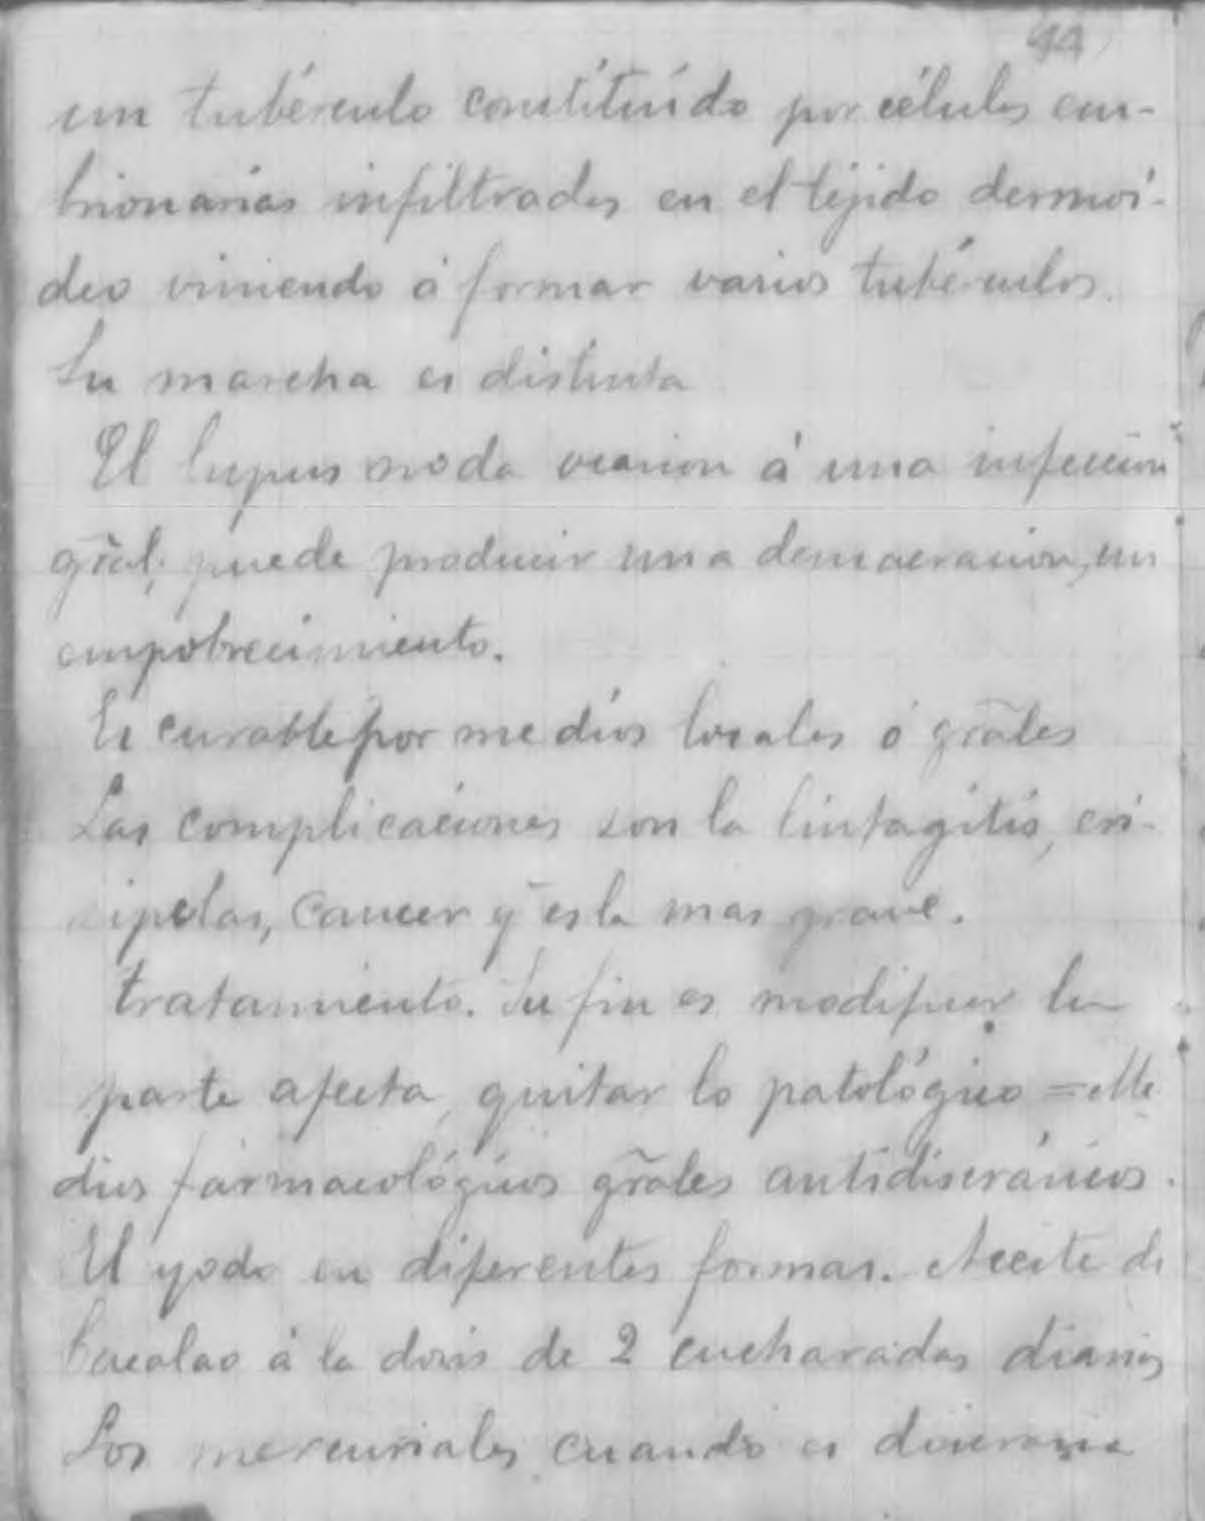 44
un tubérculo constituído por células em-
brionarias infiltradas en el tejido dermoi-
deo viniendo á formar varios tubérculos.
Su marcha es distinta
El lupus no da ocasion á una infeccion
gral; puede producir una demacracion, un
empobrecimiento.
Es curable por medios locales ó grales
Las complicaciones son la linfagitis, eri-
sipelas, Cancer q̃ es la mas grave.
tratamiento. Su fin es modificar la
parte afecta, quitar lo patológico = Me
dios farmacológicos grales antidiscrásicos.
El yodo en diferentes formas. Aceite de
bacalao á la dosis de 2 cucharadas diarias
Los mercuriales cuando es discrasia